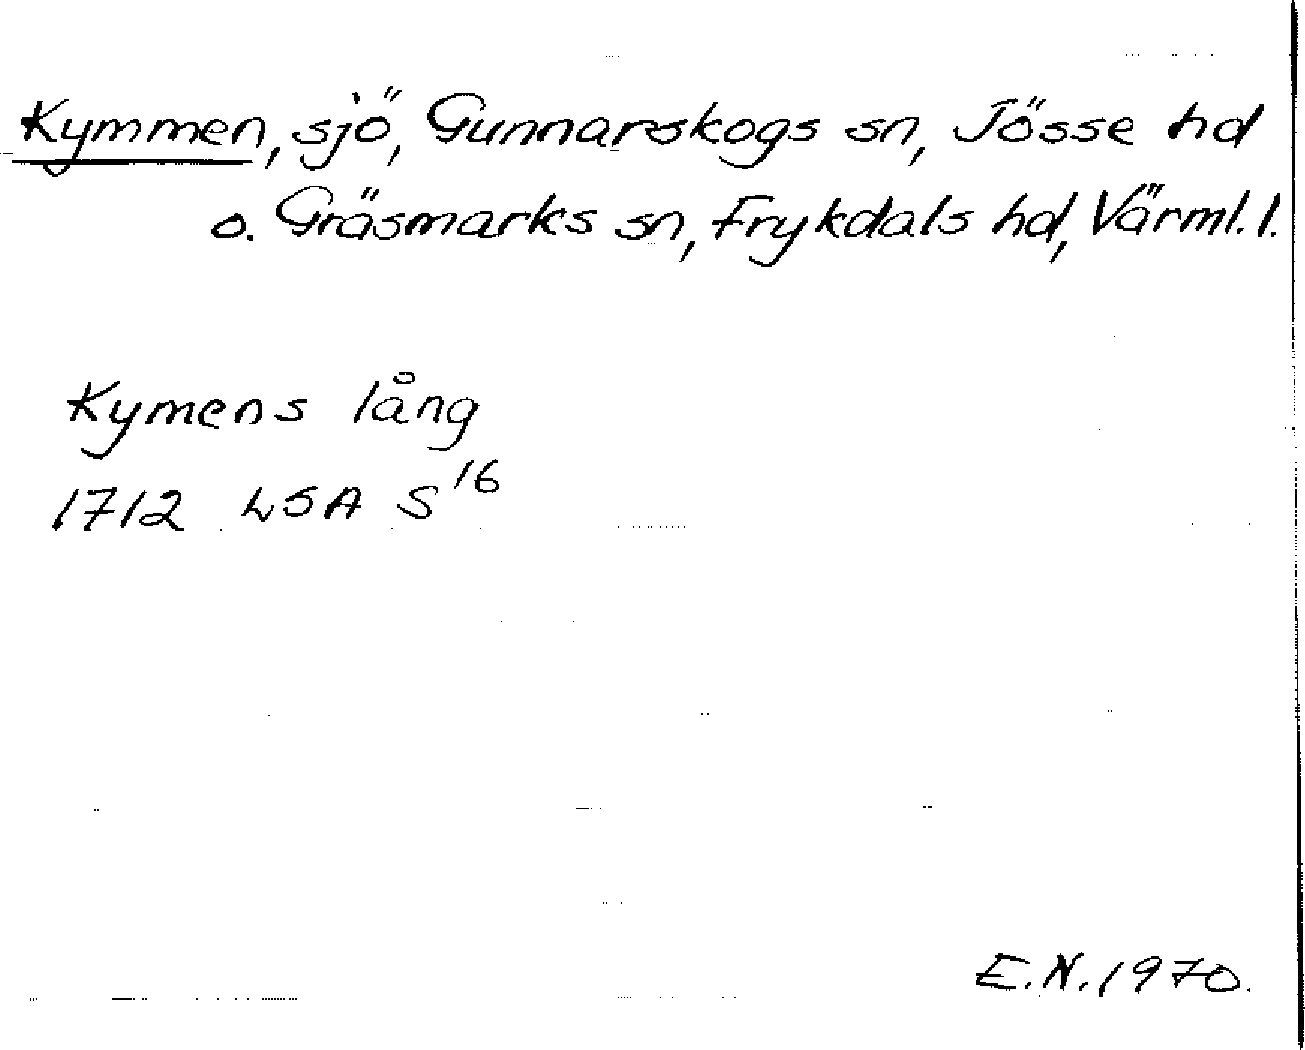 Kymmen, sjö, Gunnarskogs sn, Jösse hd
o. Gräsmarks sn, Frykdals hd, Värml. l.
Kymens lång
1712 LSA S 16
E.N. 1970.